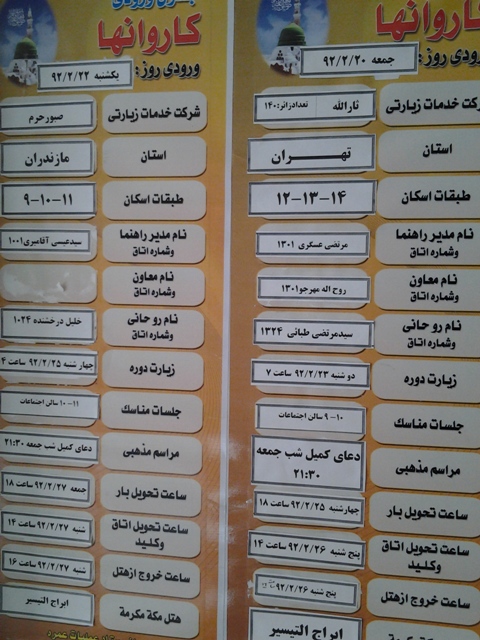 کاروانها
ورودی روز: جمعه ۹۲/۲/۲۰
شرکت خدمات زیارتی ثارالله تعدادزائر:۱۴۰
استان تهران
طبقات اسکان ۱۲-۱۳-۱۴
نام مدیر راهنما وشماره اتاق مرتضی عسکری ۱۳۰۱
نام معاون وشماره اتاق روح اله مهرجو۱۳۰۱
نام روحانی وشماره اتاق سیدمرتضی طبائی ۱۳۲۴
زیارت دوره دو شنبه ۹۲/۲/۲۳ ساعت ۷
جلسات مناسک ۹-۱۰ سالن اجتماعات
مراسم مذهبی دعای کمیل شب جمعه
۲۱:۳۰
ساعت تحویل بار چهارشنبه ۹۲/۲/۲۵ ساعت ۱۸
ساعت تحویل اتاق وکلید پنج شنبه ۹۲/۲/۲۶ ساعت ۱۴
ساعت خروج ازهتل پنج شنبه ۹۲/۲/۲۶
ابراج التیسیر
کاروانها
ورودی روز: یکشنبه ۹۲/۲/۲۲
شرکت خدمات زیارتی صبورحرم
استان مازندران
طبقات اسکان ۹-۱۰-۱۱
نام مدیر راهنما وشماره اتاق سیدعیسی آقامیری۱۰۰۱
نام معاون وشماره اتاق
نام روحانی وشماره اتاق خلیل درخشنده ۱۰۲۴
زیارت دوره چهارشنبه ۹۲/۲/۲۵ ساعت ۴
جلسات مناسک ۱۰-۱۱ سالن اجتماعات
مراسم مذهبی دعای کمیل شب جمعه ۲۱:۳۰
ساعت تحویل بار جمعه ۹۲/۲/۲۷ ساعت ۱۸
ساعت تحویل اتاق وکلید شنبه ۹۲/۲/۲۷ ساعت ۱۴
ساعت خروج ازهتل شنبه ۹۲/۲/۲۷ ساعت ۱۶
هتل مکه مکرمه ابراج التیسیر